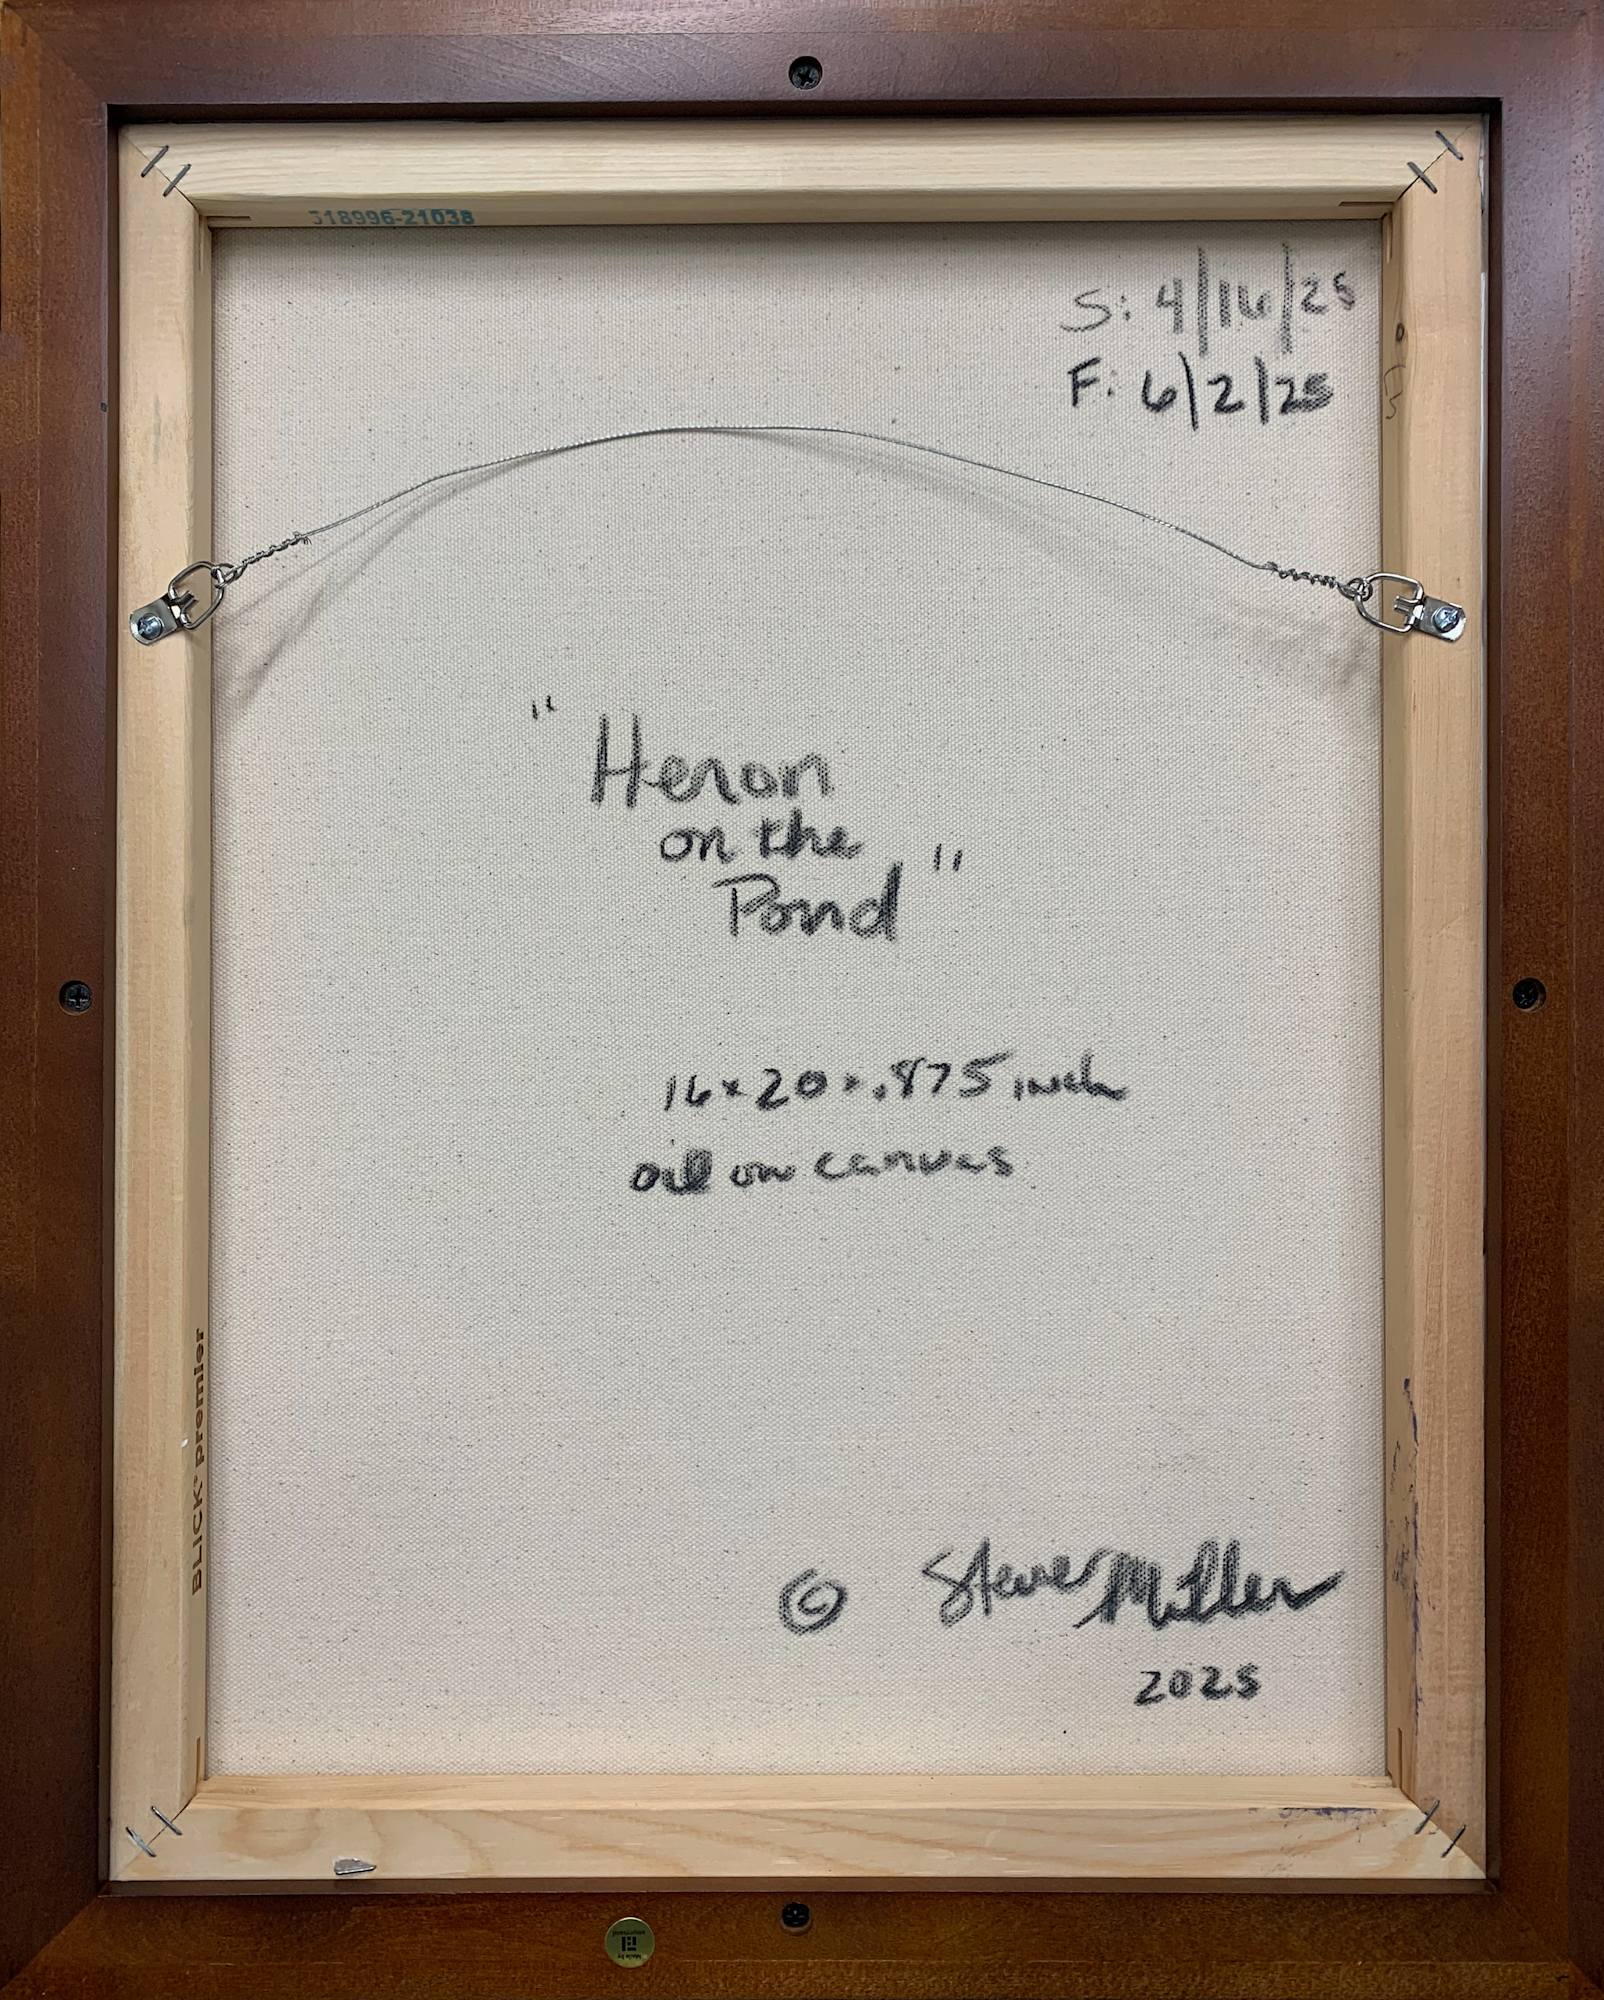 318996-21038
S: 4/16/25
F: 6/2/25
"Heron
on the
Pond"
16 x 20 x .875 inch
oil on canvas
BLICK® premier
© Steve Miller
2025
Made by